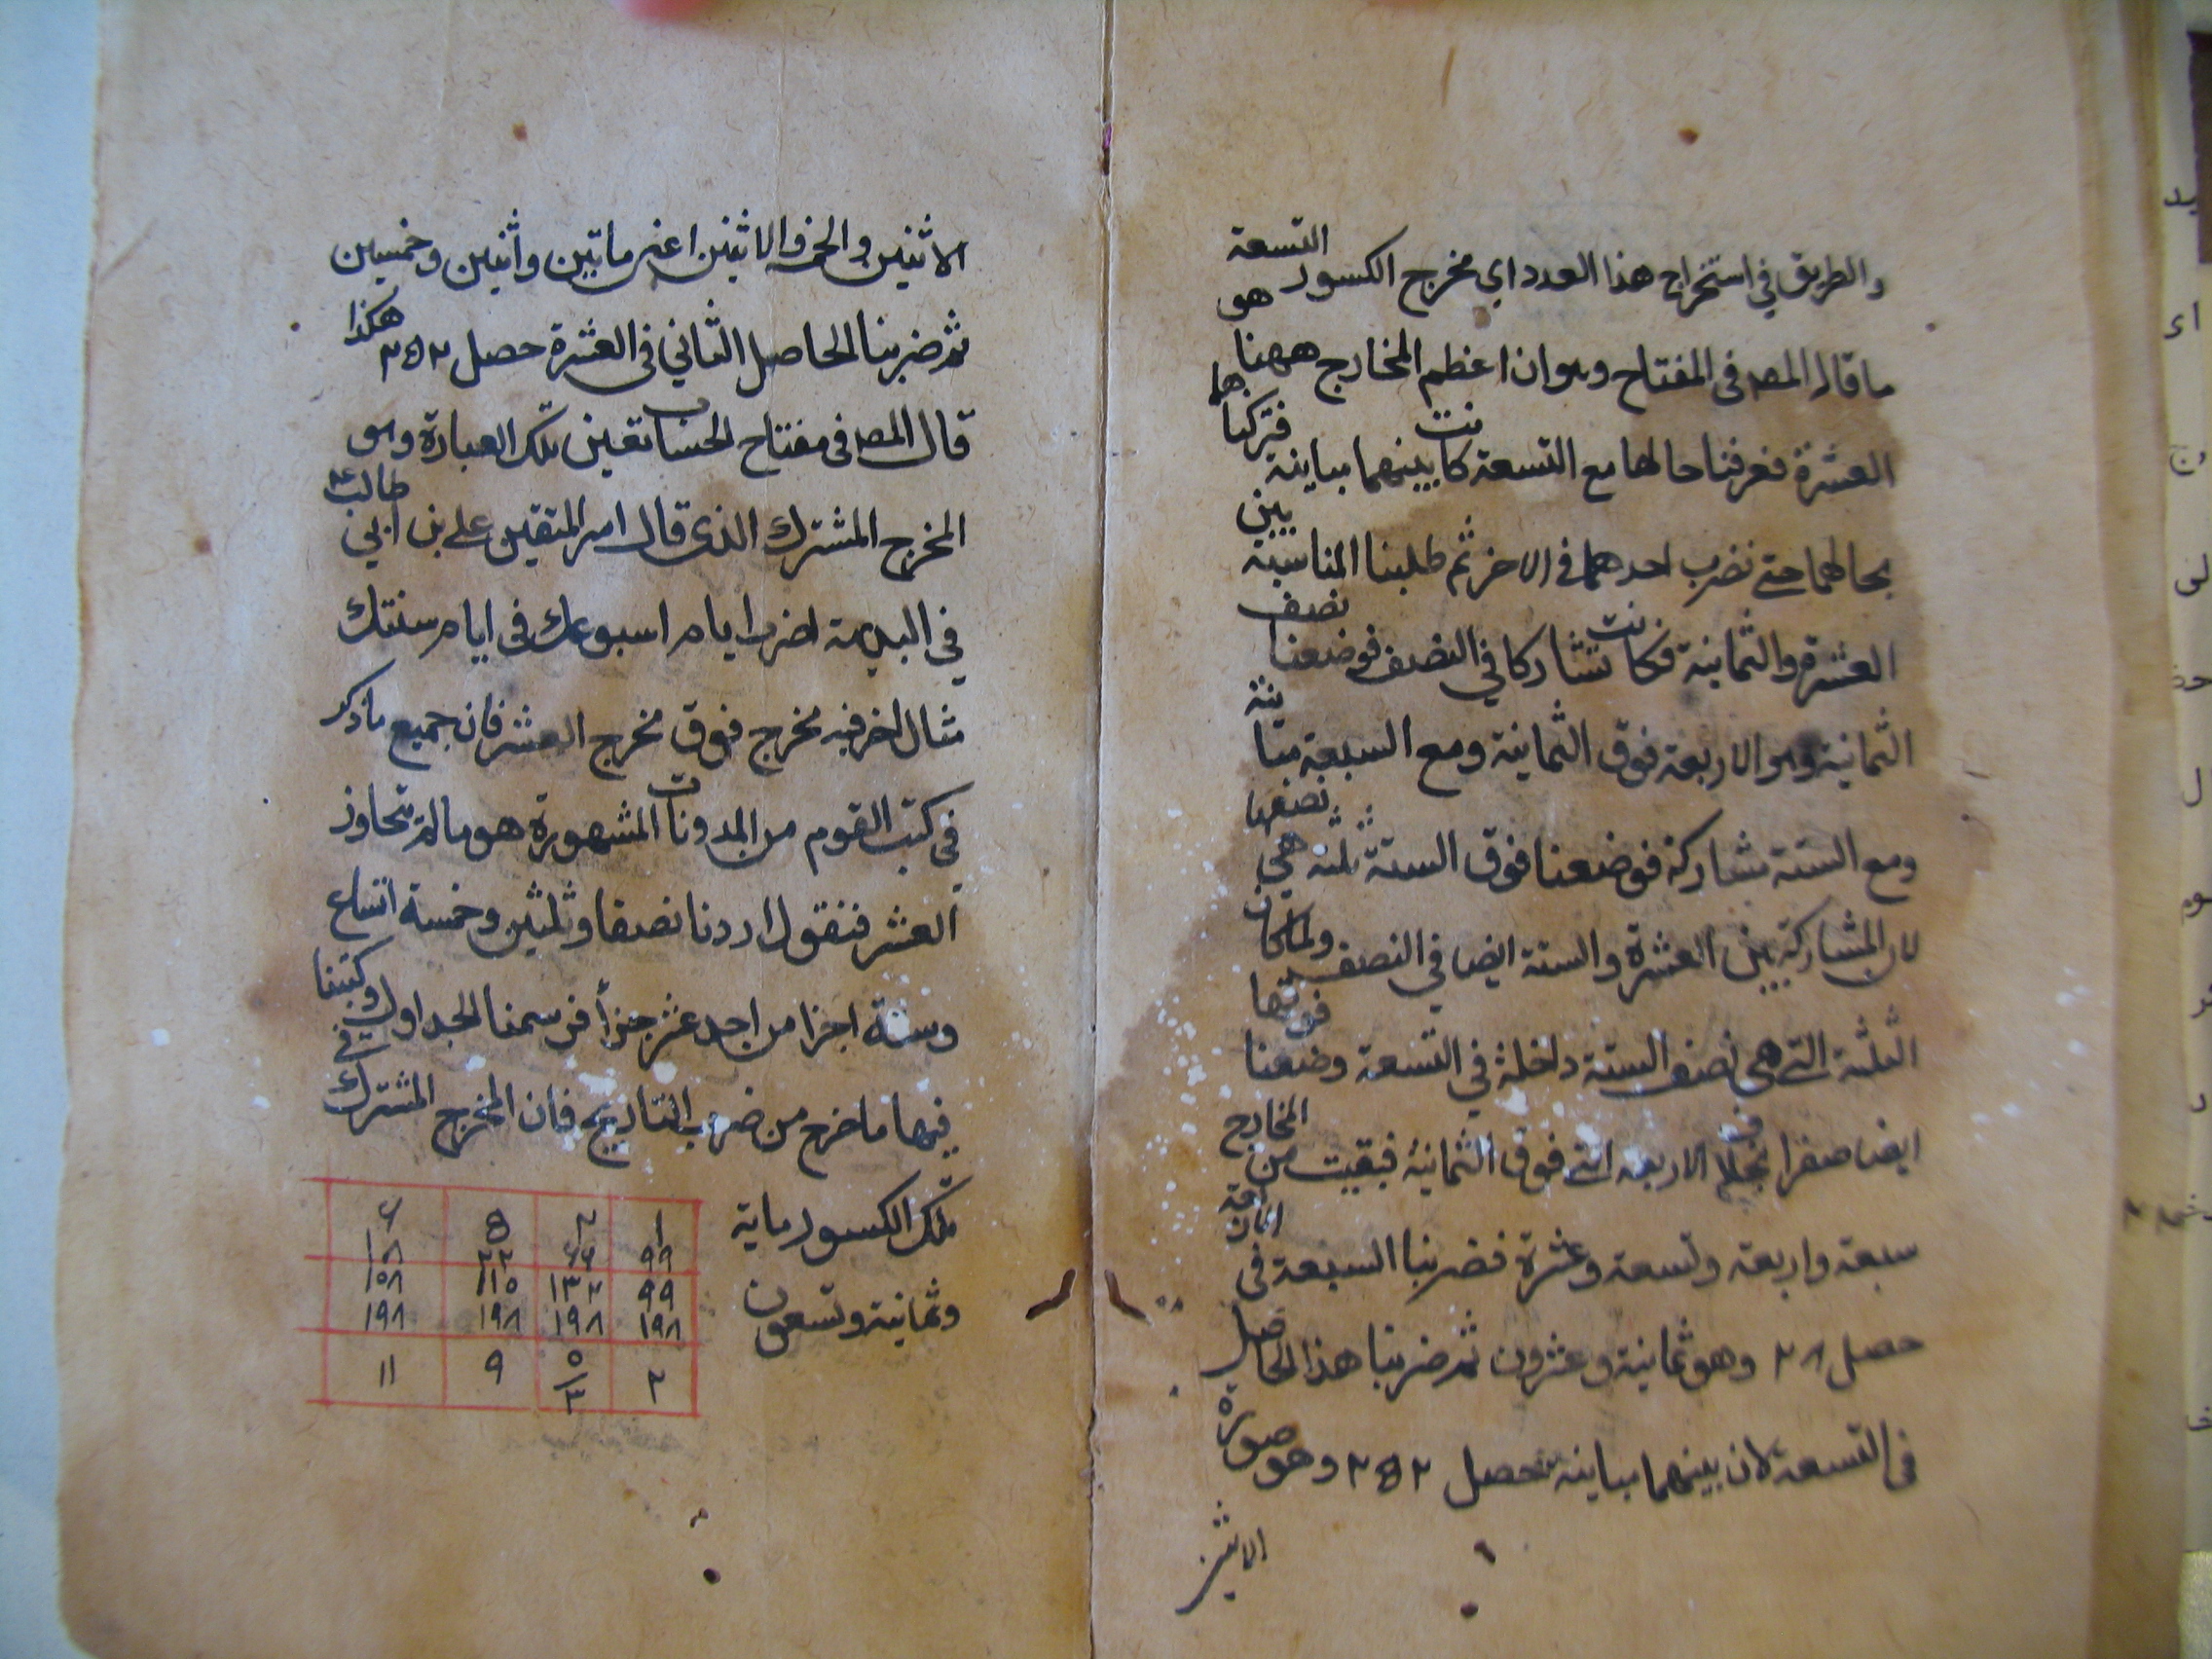 والطريق في استخراج هذا العدد اي مخرج الكسور التسعة هو
ما قال المصـ في المفتاح وهو ان اعظم المخارج ههنا
العشرة فعرفنا حالها مع التسعة كانت بينهما مباينة فتركناهما
بحالهما حتى نضرب احدهما في الاخر ثم طلبنا المناسبة بين
العشرة والثمانية فكانت تشاركا في النصف فوضعنا نصف
الثمانية وهو الاربعة فوق الثمانية ومع السبعة مباينة
ومع الستة مشاركة فوضعنا فوق الستة ثلثة هي نصفها
لان المشاركة بين العشرة والستة ايضا في النصف ولما كان
الثلثة التي هي نصف الستة داخلة في التسعة وضعنا فوقها
ايضا صفرا بخلاف الاربعه التي فوق الثمانية فبقيت من المخارج
سبعة واربعة وتسعة وعشرة فضربنا السبعة في الاربعة
حصل ٢٨ وهو ثمانية وعشرون ثم ضربنا هذا الحاصل
في التسعة لان بينهما مباينة حصل ٢٥٢ وهو صورة
الاثنين
الاثنين والخمسة والاثنين اعني مأتين واثنين وخمسين
ثم ضربنا الحاصل الثاني في العشرة حصل ٢٥٢ هكذا
قال المصـ في مفتاح الحساب تعين تلك العبارة وهو
المخرج المشترك الذي قال امير المتقين علي بن ابي طالب
في البديهة اضرب ايام اسبوعك في ايام سنتك
مثال اخر فيه مخرج فوق مخرج العشر فان جميع ما ذكر
في كتب القوم من المدونات المشهورة هو ما لم يتجاوز
العشر فنقول اردنا نصفا وثلثين وخمسة اتساع
وستة اجزا من احد عشر جزأ فرسمنا الجداول وكتبنا
فيها ما خرج من ضرب التاريج فان المخرج المشترك في
تلك الكسور ماية
وثمانية وتسعون
١ ٢ ٥ ٦
٩٩ ٦٦ ٢٢ ١٨
٩٩ ١٣٢ ١١٥ ١٥٨
١٩٨ ١٩٨ ١٩٨ ١٩٨
٢ ٥ ٣ ٩ ١١